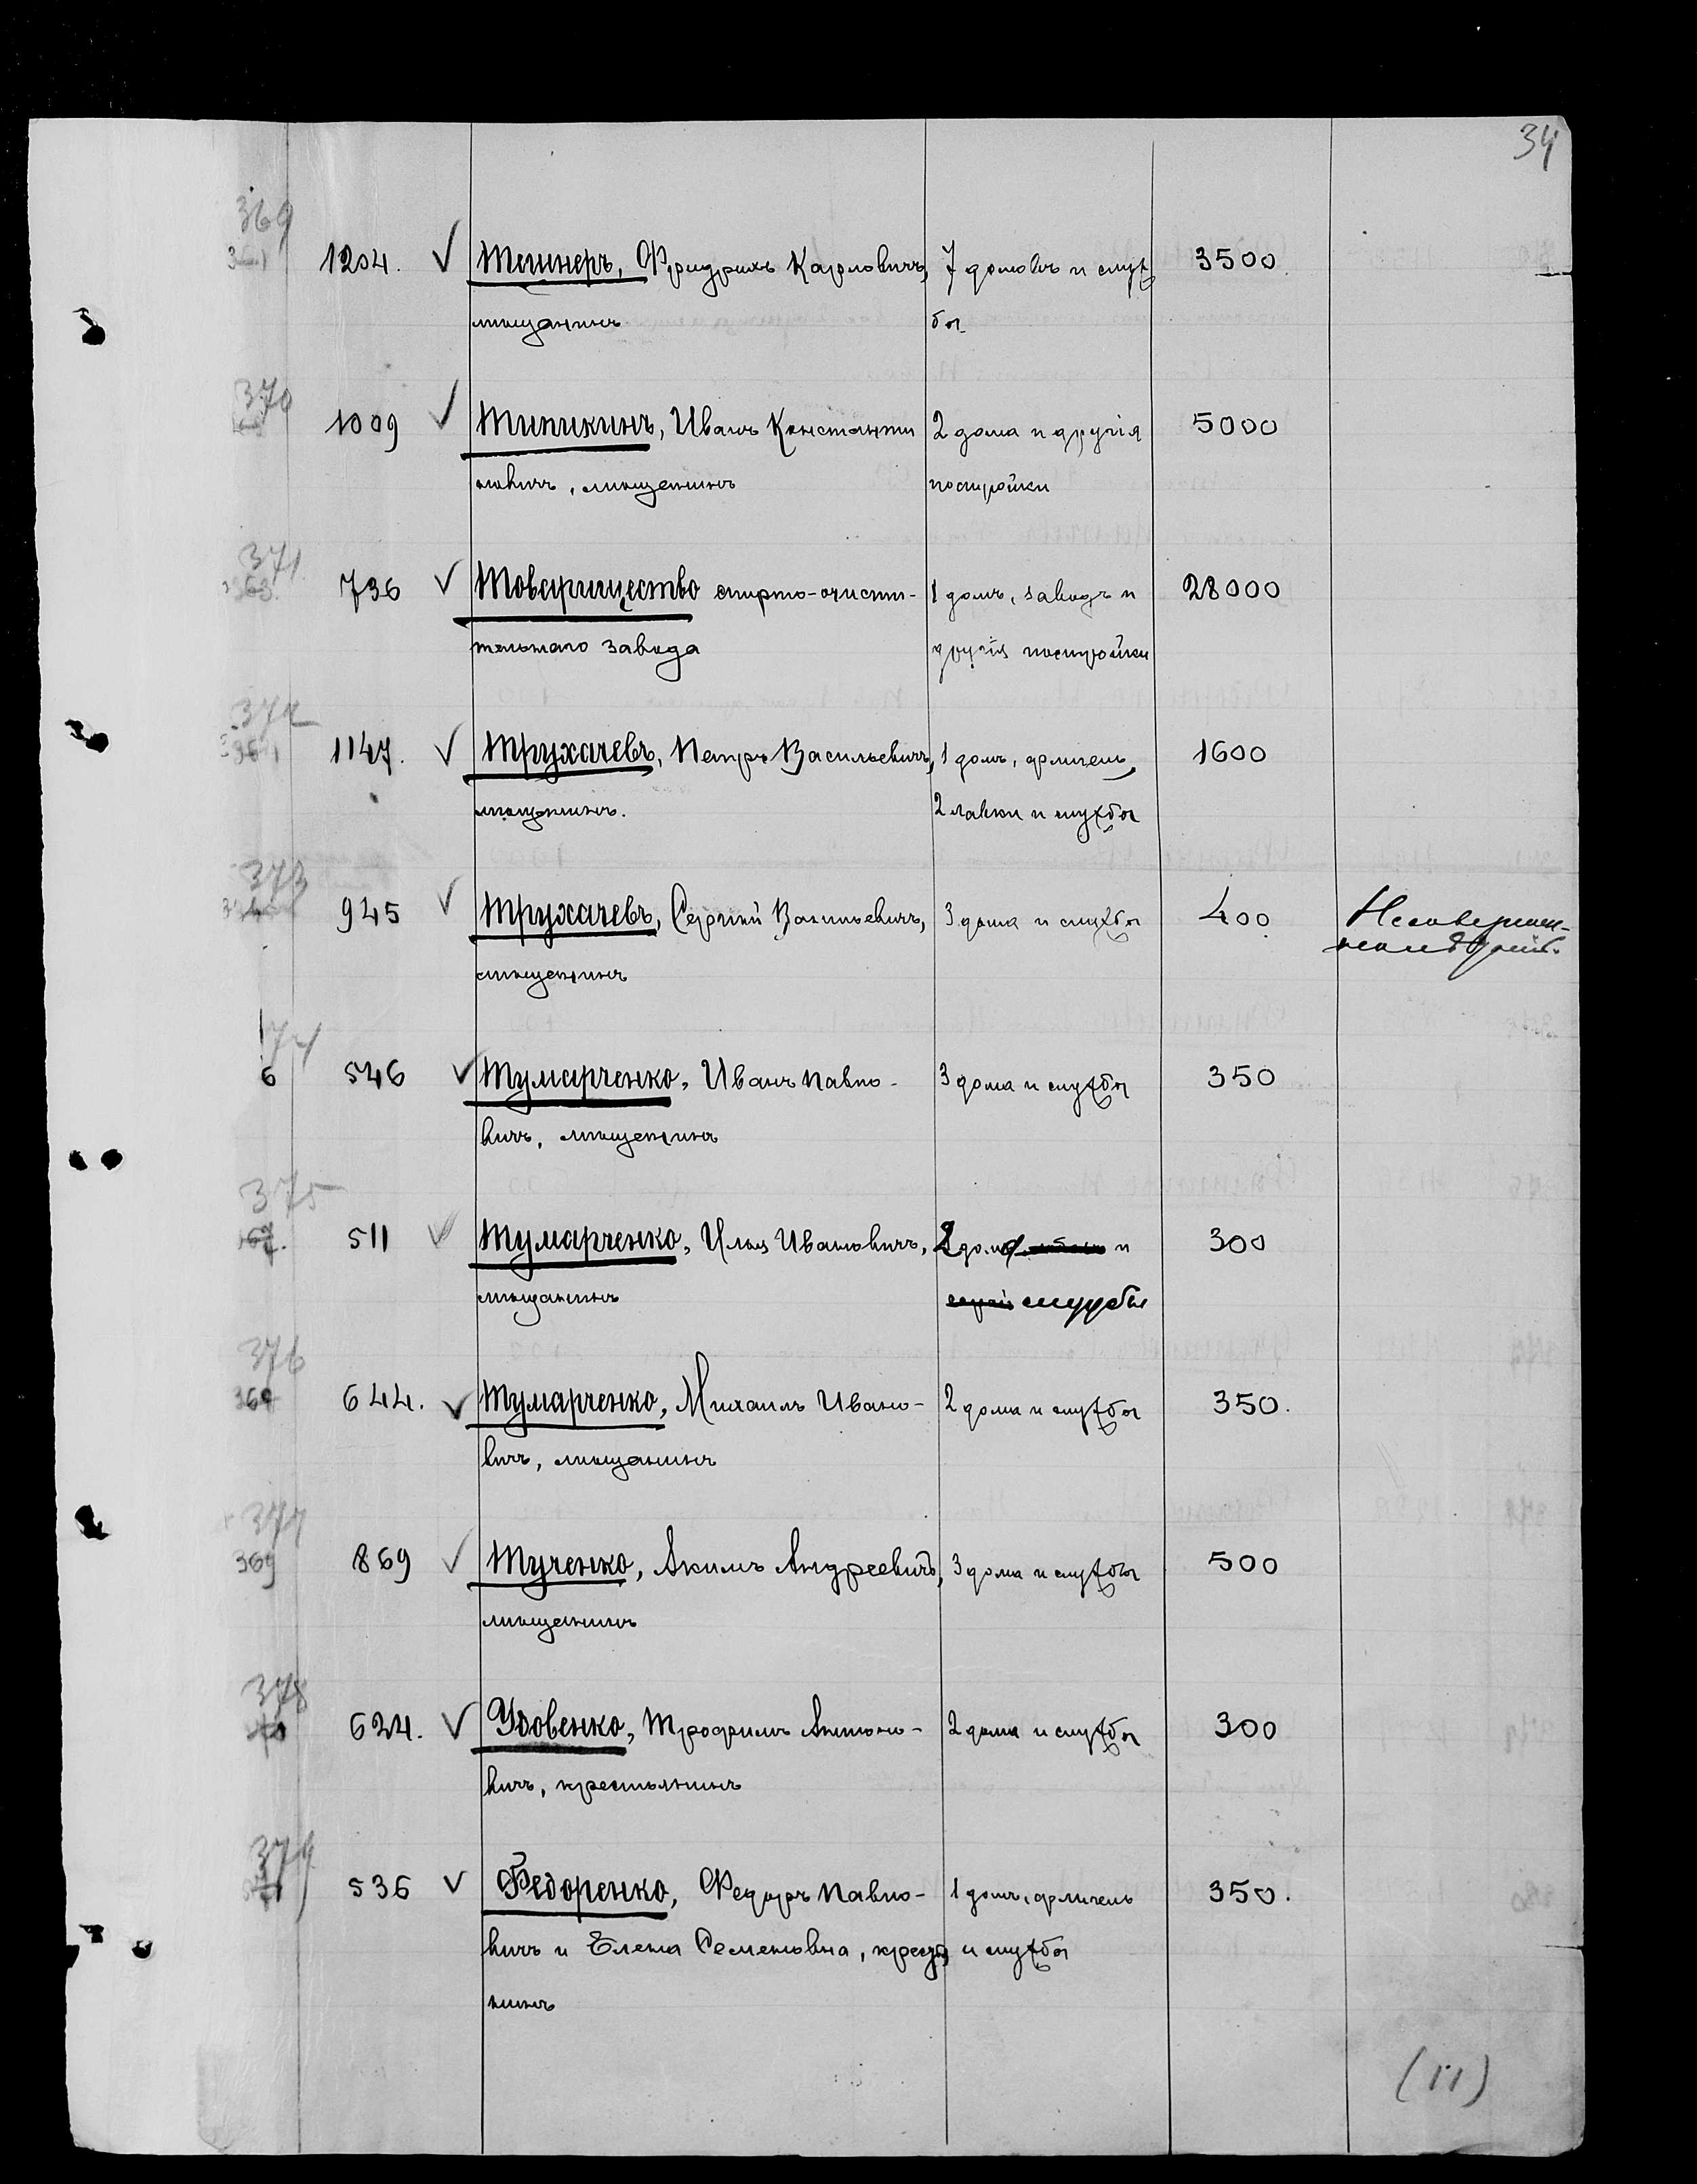 34
369
1204. Тешнеръ, Фридрихъ Карловичъ, 7 домовъ и служ 3500
мѣщанинъ бы
370
1009 Типикинъ, Иванъ Константи 2 дома и другія 5000
новичъ, мѣщанинъ постройки
371
363. 736 Товарищество спирто-очисти- 1 домъ, заводъ и 28000
тельнаго завода другія постройки
372
364 1147. Трухачевъ, Петръ Васильевичъ, 1 домъ, флигель, 1600
мѣщанинъ. 2 лавки и службы
373
945 Трухачевъ, Сергѣй Васильевичъ, 3 дома и службы 400 Несовершен-
мѣщанинъ
374
6 546 Тумарченко, Иванъ Павло- 3 дома и службы 350
вичъ, мѣщанинъ
375
511 Тумарченко, Илья Ивановичъ, 2 дома и 300
мѣщанинъ службы
376
644. Тумарченко, Михаилъ Ивано- 2 дома и службы 350.
вичъ, мѣщанинъ
377
369 869 Тученко, Акимъ Андреевичъ, 3 дома и службы 500
мѣщанинъ
378
624. Удовенко, Трофимъ Антоно- 2 дома и службы 300
вичъ, крестьянинъ
379
536 Федоренко, Федоръ Павло- 1 домъ, флигель 350.
вичъ и Елена Семеновна, крестья и службы
нинъ
(11)